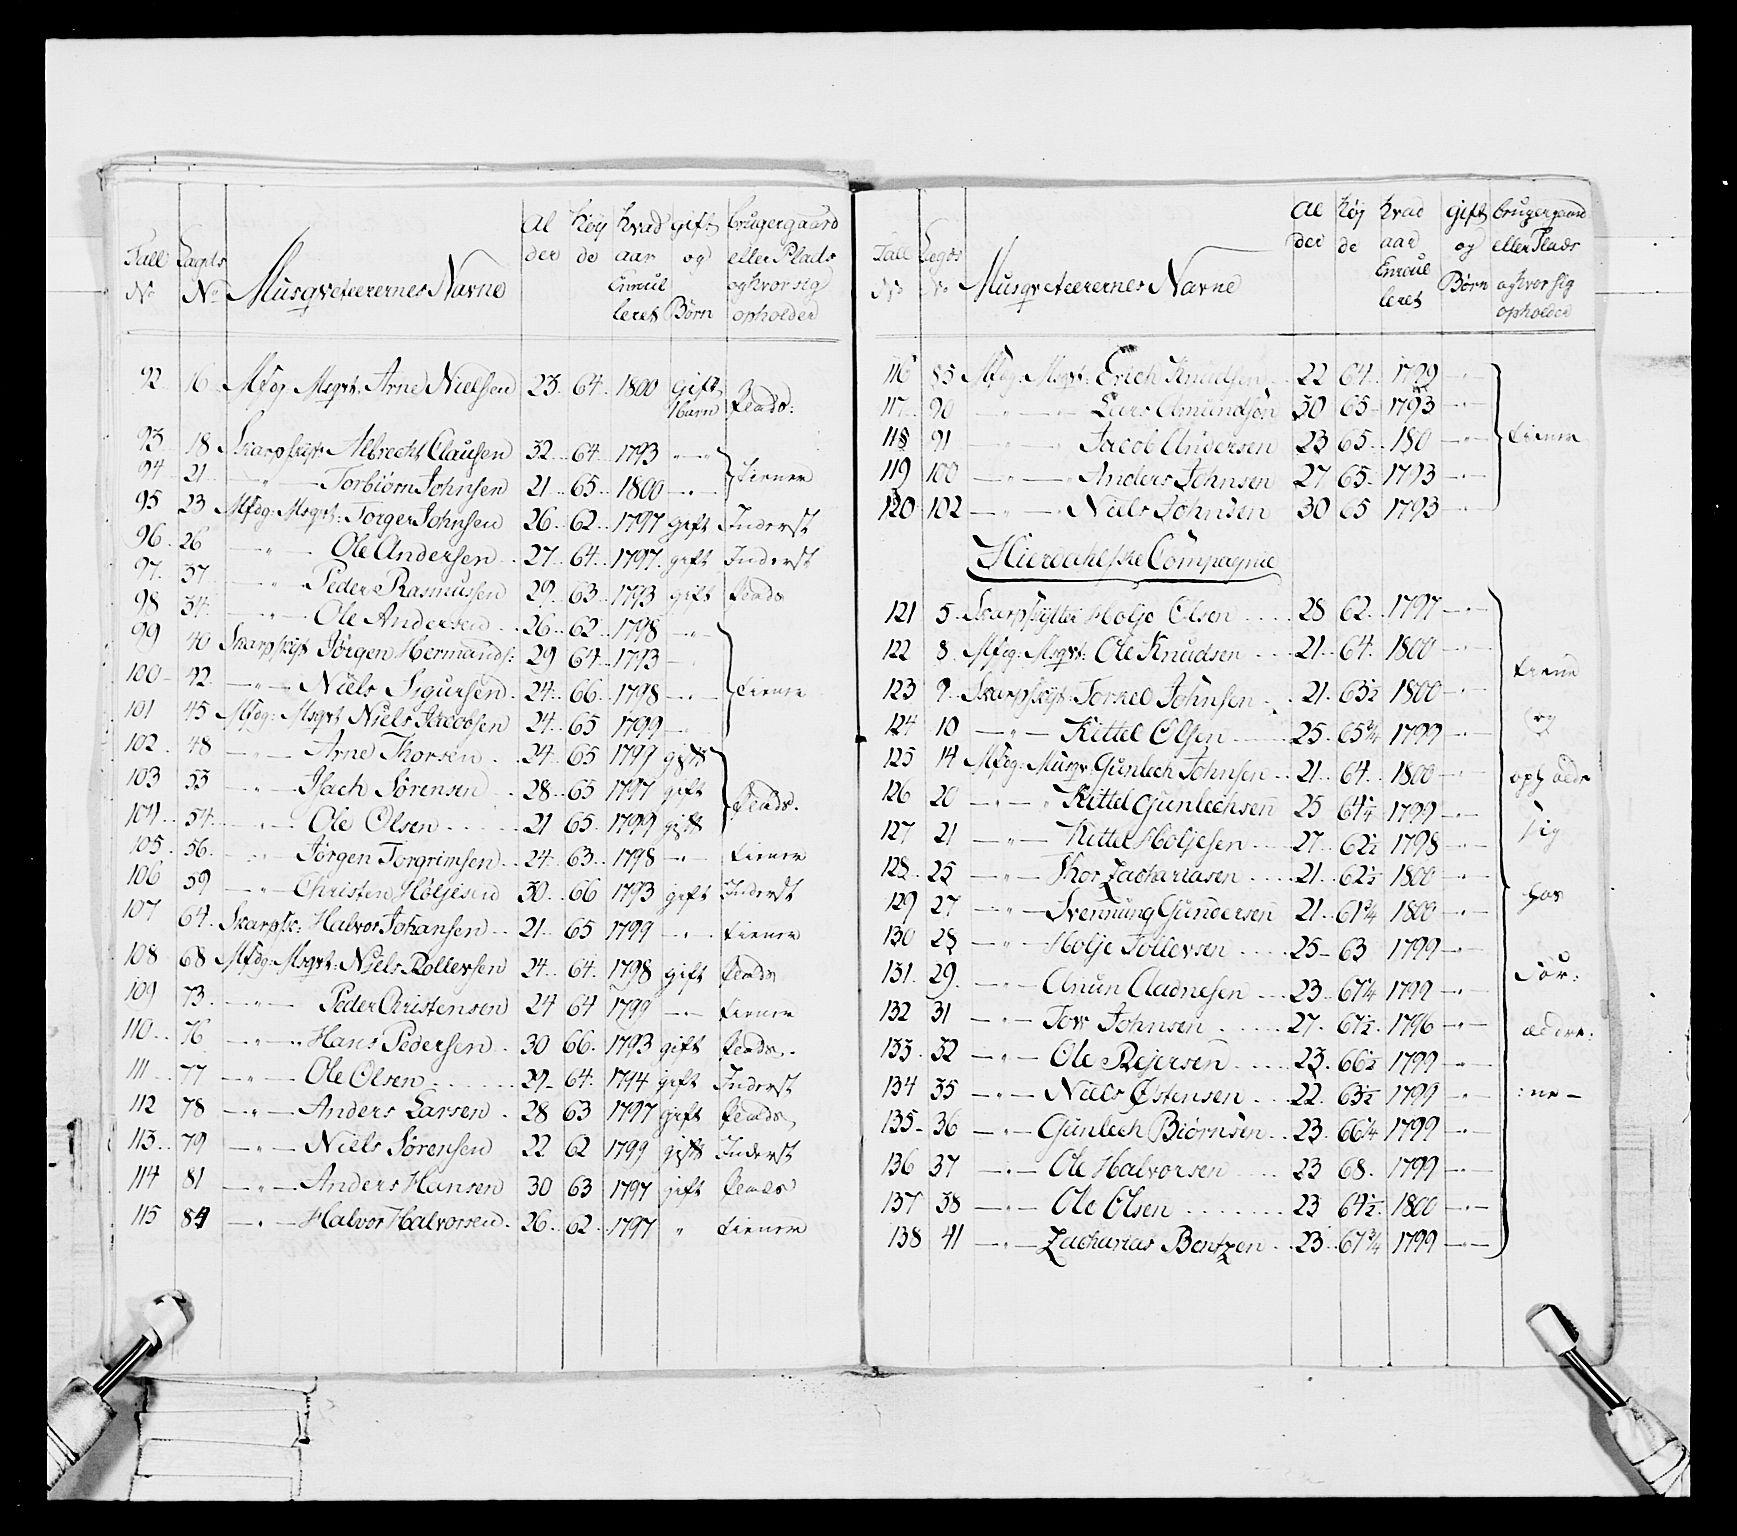 Tall No | Lægds No | Musqveteerernes Navne | Al der | Høy de | hvad aar Enroul leret | gift og Børn | brugergaard eller Plads og hvor sig opholder
92 16 Nfdg: Msqvt: Arne Nielsen 23 64 1800 gift 1 barn Plads:
93 18 Skarpskyt: Albrecht Clausen 32 64 1793 – " –
94 21 – " – Torbiørn Johnsen 21 65 1800 – " – tiener
95 23 Nfdg: Msqvt: Torger Johnsen 26 62 1797 gift Inderst
96 26 – " – Ole Andersen 27 64 1797 gift Inderst
97 37 – " – Peder Rasmussen 29 63 1793 gift Plads
98 34 – " – Ole Andersen 26 62 1798 – " –
99 40 Skarpskyt Jørgen Hermands: 29 64 1793 – " –
100 42 – " – Niels Sigursen 24 66 1798 – " – tiener
101 45 Nfdg: Msqvt Niels Jacobsen 24 65 1799 – " –
102 48 – " – Arne Thorsen 24 65 1799 gift
103 53 – " – Isach Sørensen 28 65 1797 gift Plads.
104 54 – " – Ole Olsen 21 65 1799 gift
105 56 – " – Jørgen Torgrimsen 24 63 1798 – " – tiener
106 59 – " – Christen Høljesen 30 66 1793 gift Inderst
107 64 Skarpsk: Halvor Johansen 21 65 1799 – " – tiener
108 68 Nfdg: Msqvt: Niels Rollevsen 24 64 1798 gift Plads
109 73 – " – Peder Christensen 24 64 1799 – " – tiener
110 76 – " – Hans Pedersen 30 66 1793 gift Plads
111 77 – " – Ole Olsen 29 64 1794 gift Inderst
112 78 – " – Anders Larsen 28 63 1797 gift Plads
113 79 – " – Niels Sørensen 22 62 1799 gift Inderst
114 81 – " – Anders Hansen 30 63 1797 gift Plads
115 84 – " – Halvor Halvorsen 26 62 1797 " tiener
Tall No | Legds No | Musqveteerernes Navne | Al der | Høy de | hvad aar Enroul leret | gift og Børn | brugergaard eller Plads og hvor sig opholder
116 85 Nfdg: Msqvt: Erich Knudsen 22 64 1799 – " –
117 90 – " – Lars Amundsøn 30 65 1793 – " –
118 91 – " – Jacob Andersen 23 65 180 – " – tiener
119 100 – " – Anders Johnsen 27 65 1793 – " –
120 102 – " – Niels Johnsen 30 65 1793 – " –
Hieredahlske Compagnie
121 5 Skarpskytter Holje Olsen 28 62 1797 – " –
122 8 Nfdg: Msqvt: Ole Knudsen 21 64 1800 – " –
123 9 Skarpskyt: Torkel Johnsen 21 63½ 1800 – " – tiene
124 10 – " – Kittel Olsen 25 65¾ 1799 – " – og
125 14 Nfdg: Musqv: Gunlech Johnsen 21 64 1800 – " – opholde
126 20 – " – Kittel Gunlechsen 25 64¼ 1799 – " –
127 21 – " – Kittel Holjesen 27 62½ 1798 – " – sig
128 25 – " – Thor Zachariasen 21 62½ 1800 – " –
129 27 – " – Svennung Gundersen 21 61¾ 1800 – " – hos
130 28 – " – Holje Tollevsen 25 63 1799 – " –
131 29 – " – Anun Aadnesen 23 67¼ 1799 – " – For:
132 31 – " – Tov Johnsen 27 67½ 1796 – " – ældre:
133 32 – " – Ole Rejersen 23 66½ 1799 – " –
134 35 – " – Niels Østensen 22 63½ 1799 – " – :ne –
135 36 – " – Gunlech Biørnsen 23 66¼ 1799 – " –
136 37 – " – Ole Halvorsen 23 68 1799 – " –
137 38 – " – Ole Olsen 23 64½ 1800 – " –
138 41 – " – Zacharias Bentzen 23 67¾ 1799 – " –